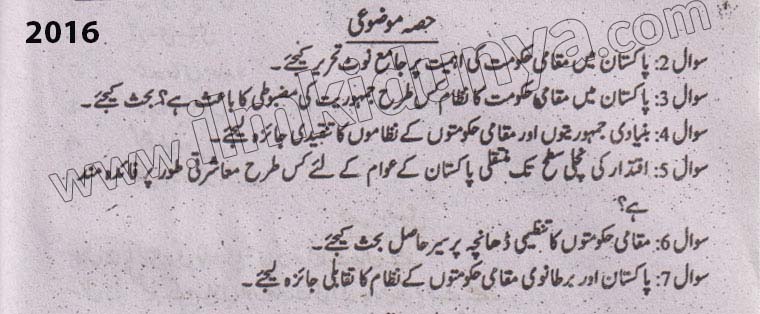 2016
حصہ موضوعی
سوال 2: پاکستان میں مقامی حکومت کی اہمیت پر جامع نوٹ تحریر کیجئے۔
سوال 3: پاکستان میں مقامی حکومت کا نظام کس طرح جمہوریت کی مضبوطی کا باعث ہے؟ بحث کیجئے۔
سوال 4: بنیادی جمہوریتوں اور مقامی حکومتوں کے نظاموں کا تنقیدی جائزہ لیجئے۔
سوال 5: اقتدار کی نچلی سطح تک منتقلی پاکستان کے عوام کے لئے کس طرح معاشرتی طور پر فائدہ مند
ہے؟
سوال 6: مقامی حکومتوں کا تنظیمی ڈھانچہ پر سیر حاصل بحث کیجئے۔
سوال 7: پاکستان اور برطانوی مقامی حکومتوں کے نظام کا تقابلی جائزہ لیجئے۔
www.ilmkidunya.com